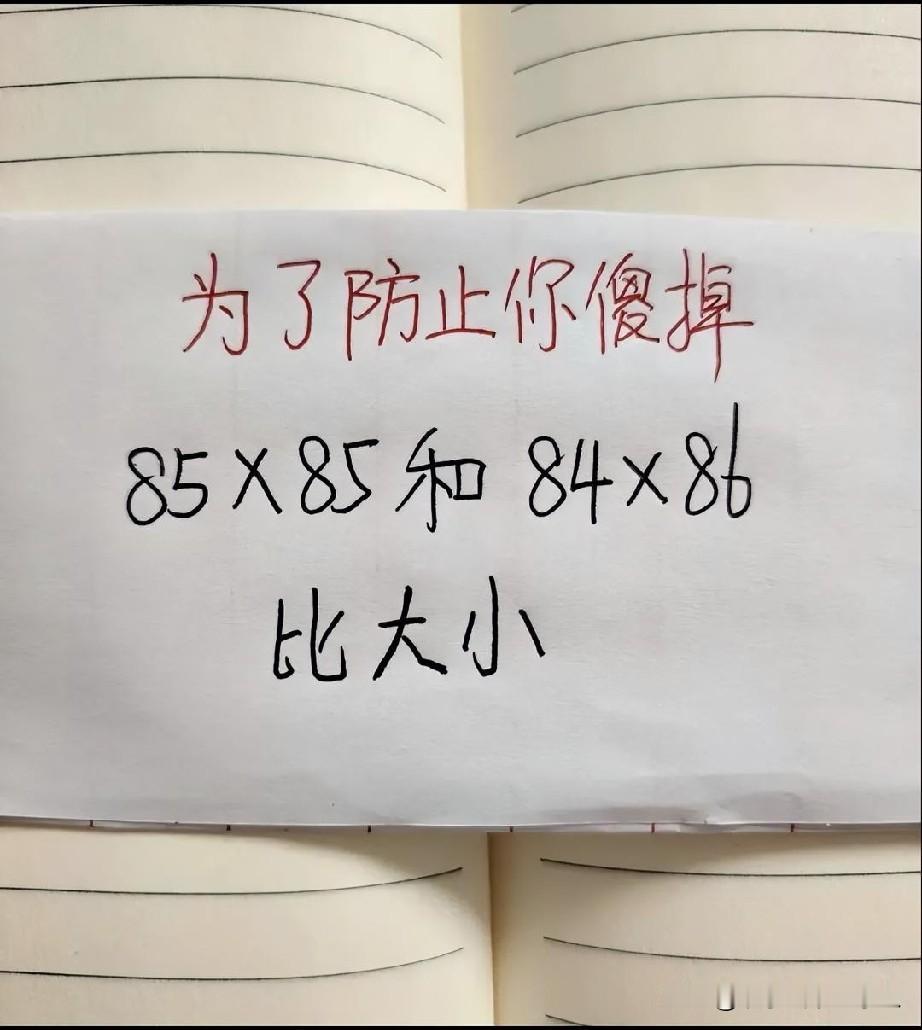 为了防止你傻掉
85×85和84×86
比大小